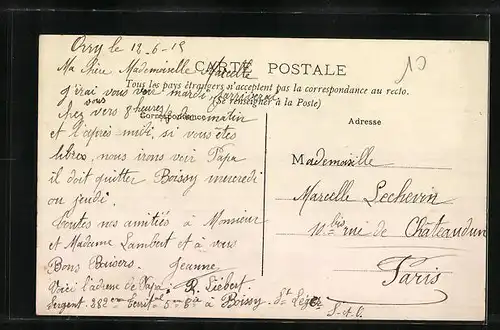 Orry le 12-6-15
CARTE POSTALE
Ma chère Mademoiselle Marcelle
Tous les pays étrangers n'acceptent pas la correspondance au recto.
(Se renseigner à la Poste)
j'irai vous voir mardi, j'arriverai
chez vous vers 8 heures ½ du matin
Correspondance
et l'après midi, si vous êtes
libres, nous irons voir Papa
il doit quitter Boissy mercredi
ou jeudi.
Toutes nos amitiés à Monsieur
et Madame Lambert et à vous
Bons Baisers. Jeanne
Voici l'adresse de Papa: R. Liebert
Sergent 38 territal 5me Cie à Boissy St Léger
S-et-O.
Adresse
Mademoiselle
Marcelle Lechevin
bis rue de Châteaudun
Paris